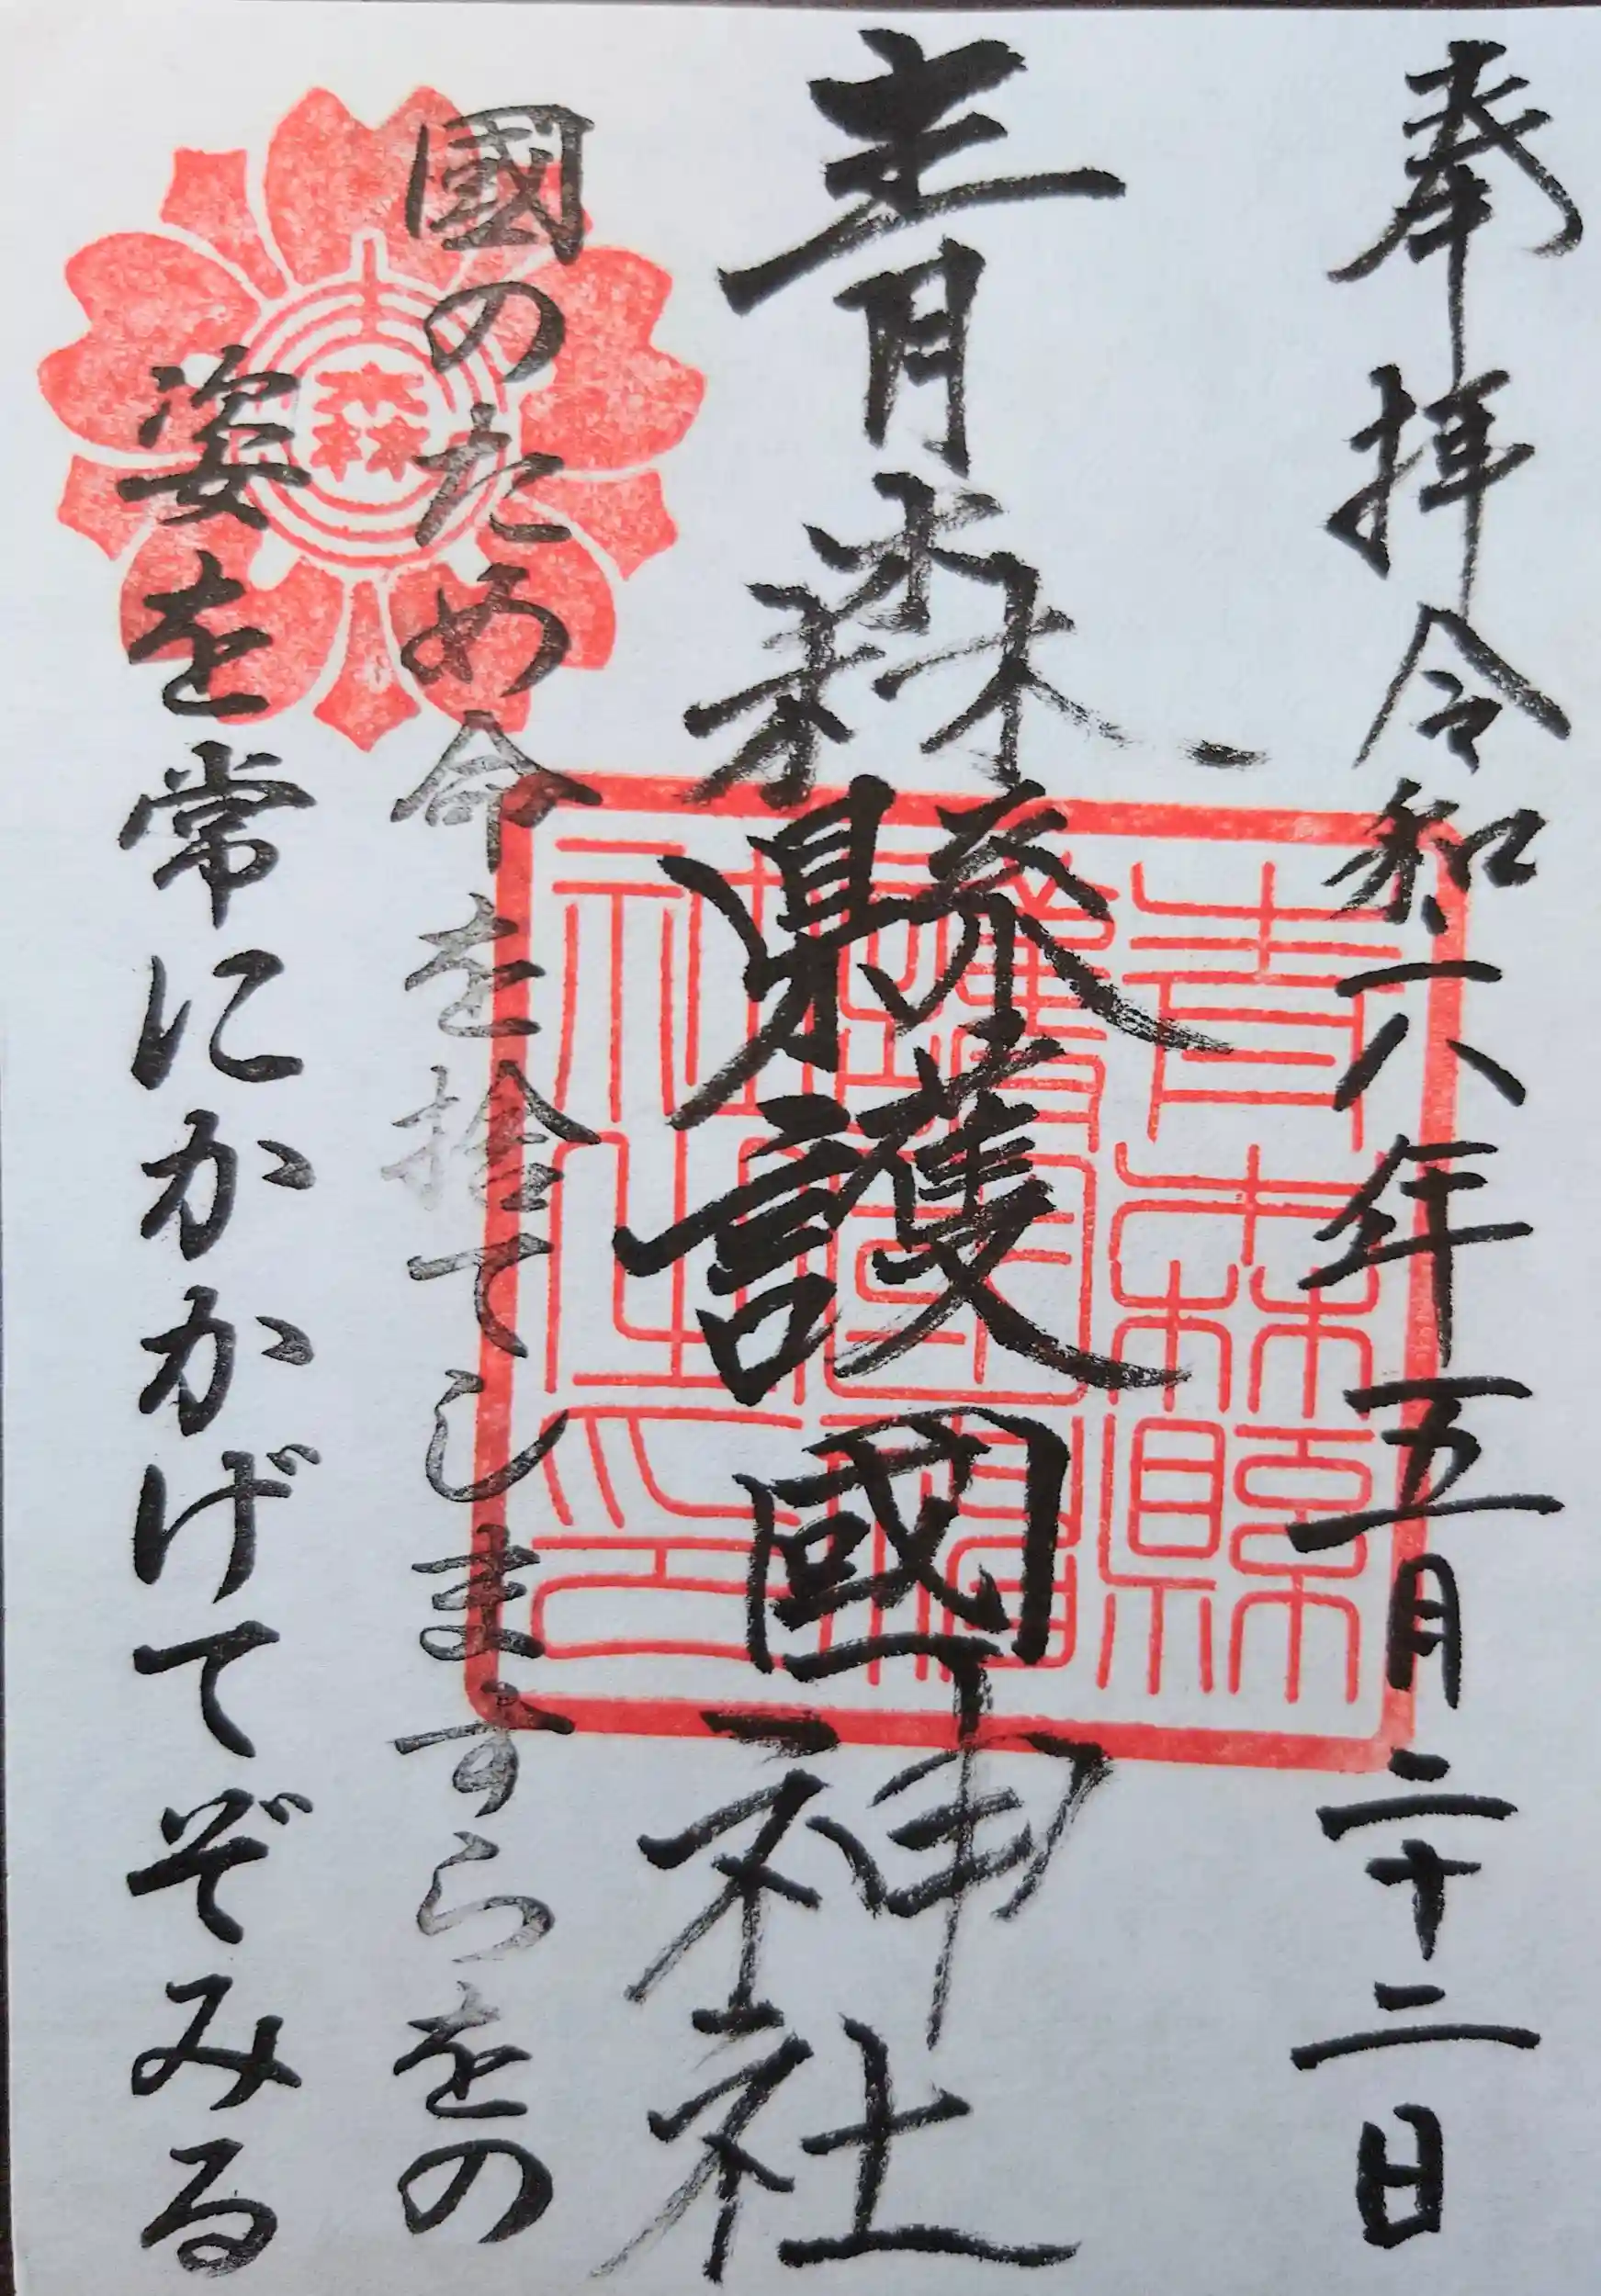 奉拝令和六年五月二十二日
青森縣護國神社
國のため命を捨てしますらをの
姿を常にかかげてぞみる
青森縣
護國神
社之印
森